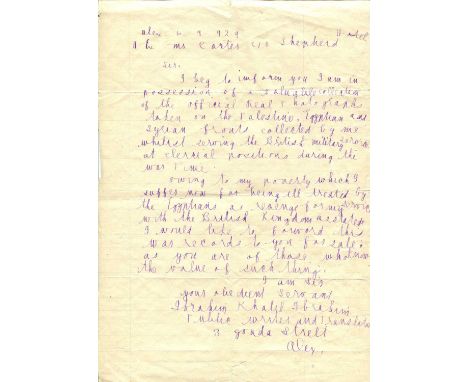 Alex 4. 9. 929
Mr Carter c/o Shepherd Hotel
Sir.
I beg to inform you I am in
possession of a valuable collection
of the official real Photographs
taken on the Palestine, Egyptian and
Syrian fronts collected by me
whilst serving the British military service
at clerical positions during the
war time.
Owing to my poverty which I
suffer now for being ill treated by
the Egyptians as revenge for my service
with the British Kingdom
I would like to forward this
war records to you for sale
as you are of those who know
the value of such thing.
I am Sir
your obedient Servant
Ibrahim Khalil Ibrahim
Public writer and Translator
3 Street
Alex.